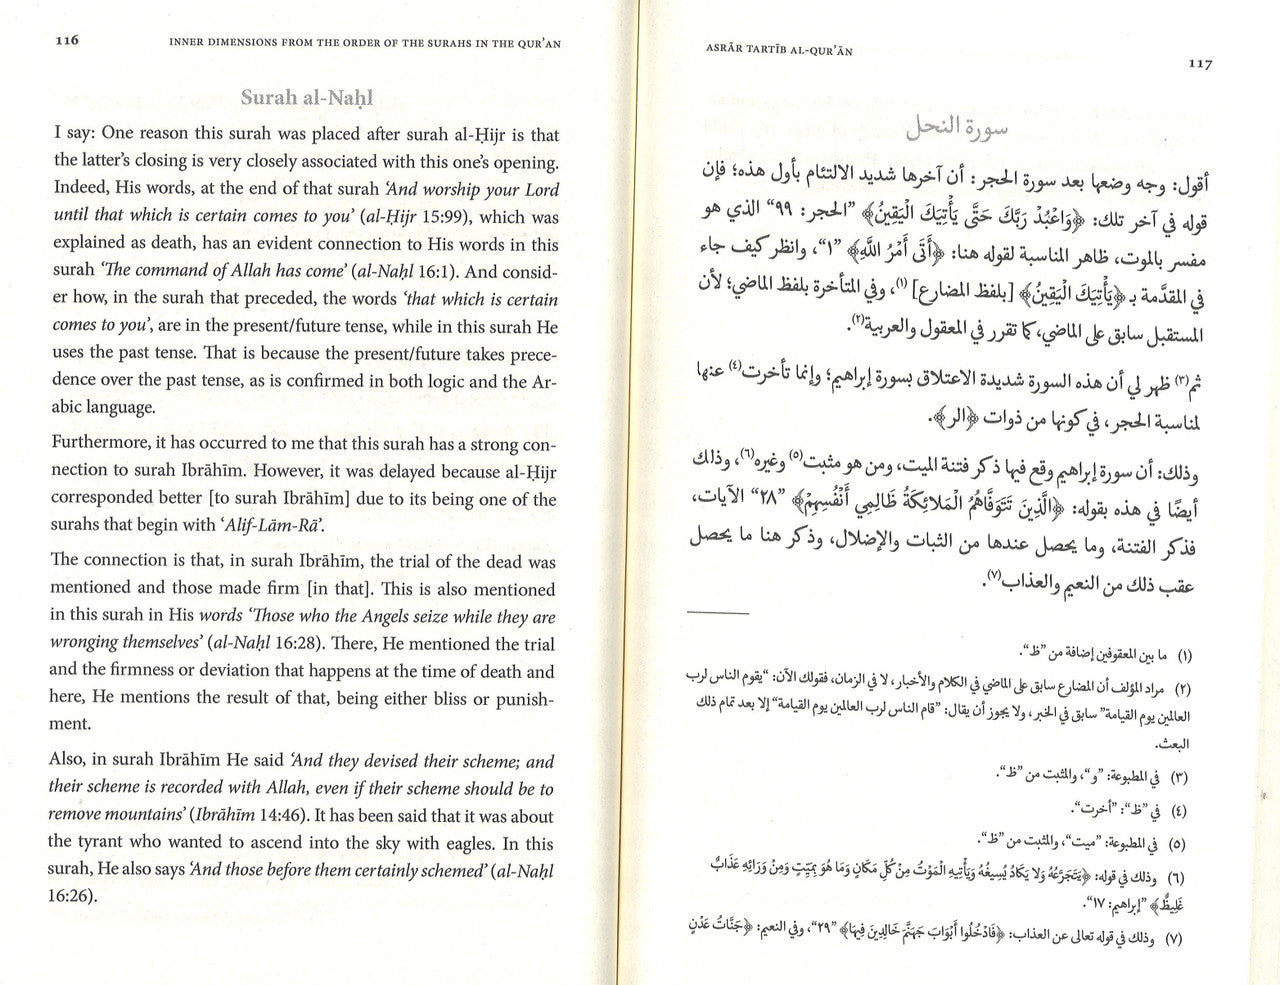 116
INNER DIMENSIONS FROM THE ORDER OF THE SURAHS IN THE QUR'AN
Surah al-Naḥl
I say: One reason this surah was placed after surah al-Ḥijr is that
the latter's closing is very closely associated with this one's opening.
Indeed, His words, at the end of that surah 'And worship your Lord
until that which is certain comes to you' (al-Ḥijr 15:99), which was
explained as death, has an evident connection to His words in this
surah 'The command of Allah has come' (al-Naḥl 16:1). And consid-
er how, in the surah that preceded, the words 'that which is certain
comes to you', are in the present/future tense, while in this surah He
uses the past tense. That is because the present/future takes prece-
dence over the past tense, as is confirmed in both logic and the Ar-
abic language.
Furthermore, it has occurred to me that this surah has a strong con-
nection to surah Ibrāhīm. However, it was delayed because al-Ḥijr
corresponded better [to surah Ibrāhīm] due to its being one of the
surahs that begin with 'Alif-Lām-Rā'.
The connection is that, in surah Ibrāhīm, the trial of the dead was
mentioned and those made firm [in that]. This is also mentioned
in this surah in His words 'Those who the Angels seize while they are
wronging themselves' (al-Naḥl 16:28). There, He mentioned the trial
and the firmness or deviation that happens at the time of death and
here, He mentions the result of that, being either bliss or punish-
ment.
Also, in surah Ibrāhīm He said 'And they devised their scheme; and
their scheme is recorded with Allah, even if their scheme should be to
remove mountains' (Ibrāhīm 14:46). It has been said that it was about
the tyrant who wanted to ascend into the sky with eagles. In this
surah, He also says 'And those before them certainly schemed' (al-Naḥl
16:26).
ASRĀR TARTĪB AL-QUR'ĀN
117
سورة النحل
أقول: وجه وضعها بعد سورة الحجر: أن آخرها شديد الالتئام بأول هذه؛ فإن
قوله في آخر تلك: ﴿وَاعْبُدْ رَبَّكَ حَتَّى يَأْتِيَكَ الْيَقِينُ﴾ "الحجر: ٩٩" الذي هو
مفسر بالموت، ظاهر المناسبة لقوله هنا: ﴿أَتَى أَمْرُ اللَّهِ﴾ "١"، وانظر كيف جاء
في المقدَّمة بـ ﴿يَأْتِيَكَ الْيَقِينُ﴾ [بلفظ المضارع] (١)، وفي المتأخرة بلفظ الماضي؛ لأن
المستقبل سابق على الماضي، كما تقرر في المعقول والعربية(٢).
ثم(٣) ظهر لي أن هذه السورة شديدة الاعتلاق بسورة إبراهيم؛ وإنما تأخرت(٤) عنها
لمناسبة الحجر، في كونها من ذوات ﴿الر﴾.
وذلك: أن سورة إبراهيم وقع فيها ذكر فتنة الميت، ومن هو مثبت(٥) وغيره(٦)، وذلك
أيضًا في هذه بقوله: ﴿الَّذِينَ تَتَوَفَّاهُمُ الْمَلَائِكَةُ ظَالِمِي أَنْفُسِهِمْ﴾ "٢٨" الآيات،
فذكر الفتنة، وما يحصل عندها من الثبات والإضلال، وذكر هنا ما يحصل
عقب ذلك من النعيم والعذاب(٧).
(١) ما بين المعقوفين إضافة من "ظ".
(٢) مراد المؤلف أن المضارع سابق على الماضي في الكلام والأخبار، لا في الزمان، فقولك الآن: "يقوم الناس لرب
العالمين يوم القيامة" سابق في الخبر، ولا يجوز أن يقال: "قام الناس لرب العالمين يوم القيامة" إلا بعد تمام ذلك
البعث.
(٣) في المطبوعة: "و"، والمثبت من "ظ".
(٤) في "ظ": "أخرت".
(٥) في المطبوعة: "ميت"، والمثبت من "ظ".
(٦) وذلك في قوله: ﴿يَتَجَرَّعُهُ وَلَا يَكَادُ يُسِيغُهُ وَيَأْتِيهِ الْمَوْتُ مِنْ كُلِّ مَكَانٍ وَمَا هُوَ بِمَيِّتٍ وَمِنْ وَرَائِهِ عَذَابٌ
غَلِيظٌ﴾ "إبراهيم: ١٧".
(٧) وذلك في قوله تعالى عن العذاب: ﴿فَادْخُلُوا أَبْوَابَ جَهَنَّمَ خَالِدِينَ فِيهَا﴾ "٢٩"، وفي النعيم: ﴿جَنَّاتُ عَدْنٍ